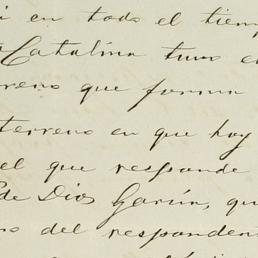 i en todo el tiemp
Catalina tuvo e
reno que forma
terreno en que hoy
el que responde
de Dios Garín, qu
o del responden